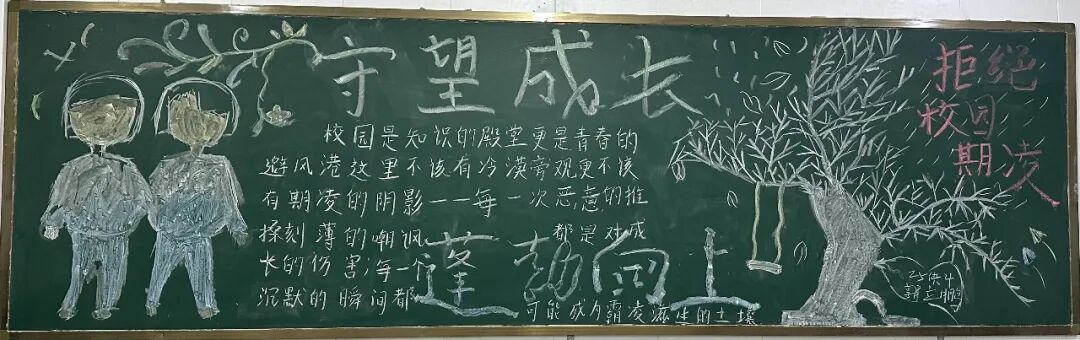 守望成长
拒绝
校园
期凌
校园是知识的殿堂更是青春的
避风港这里不该有冷漠旁观更不该
有期凌的阴影——每一次恶意的推
搡刻薄的嘲讽 都是对成
长的伤害,每一个
沉默的瞬间都
可能成为霸凌滋生的土壤
蓬勃向上